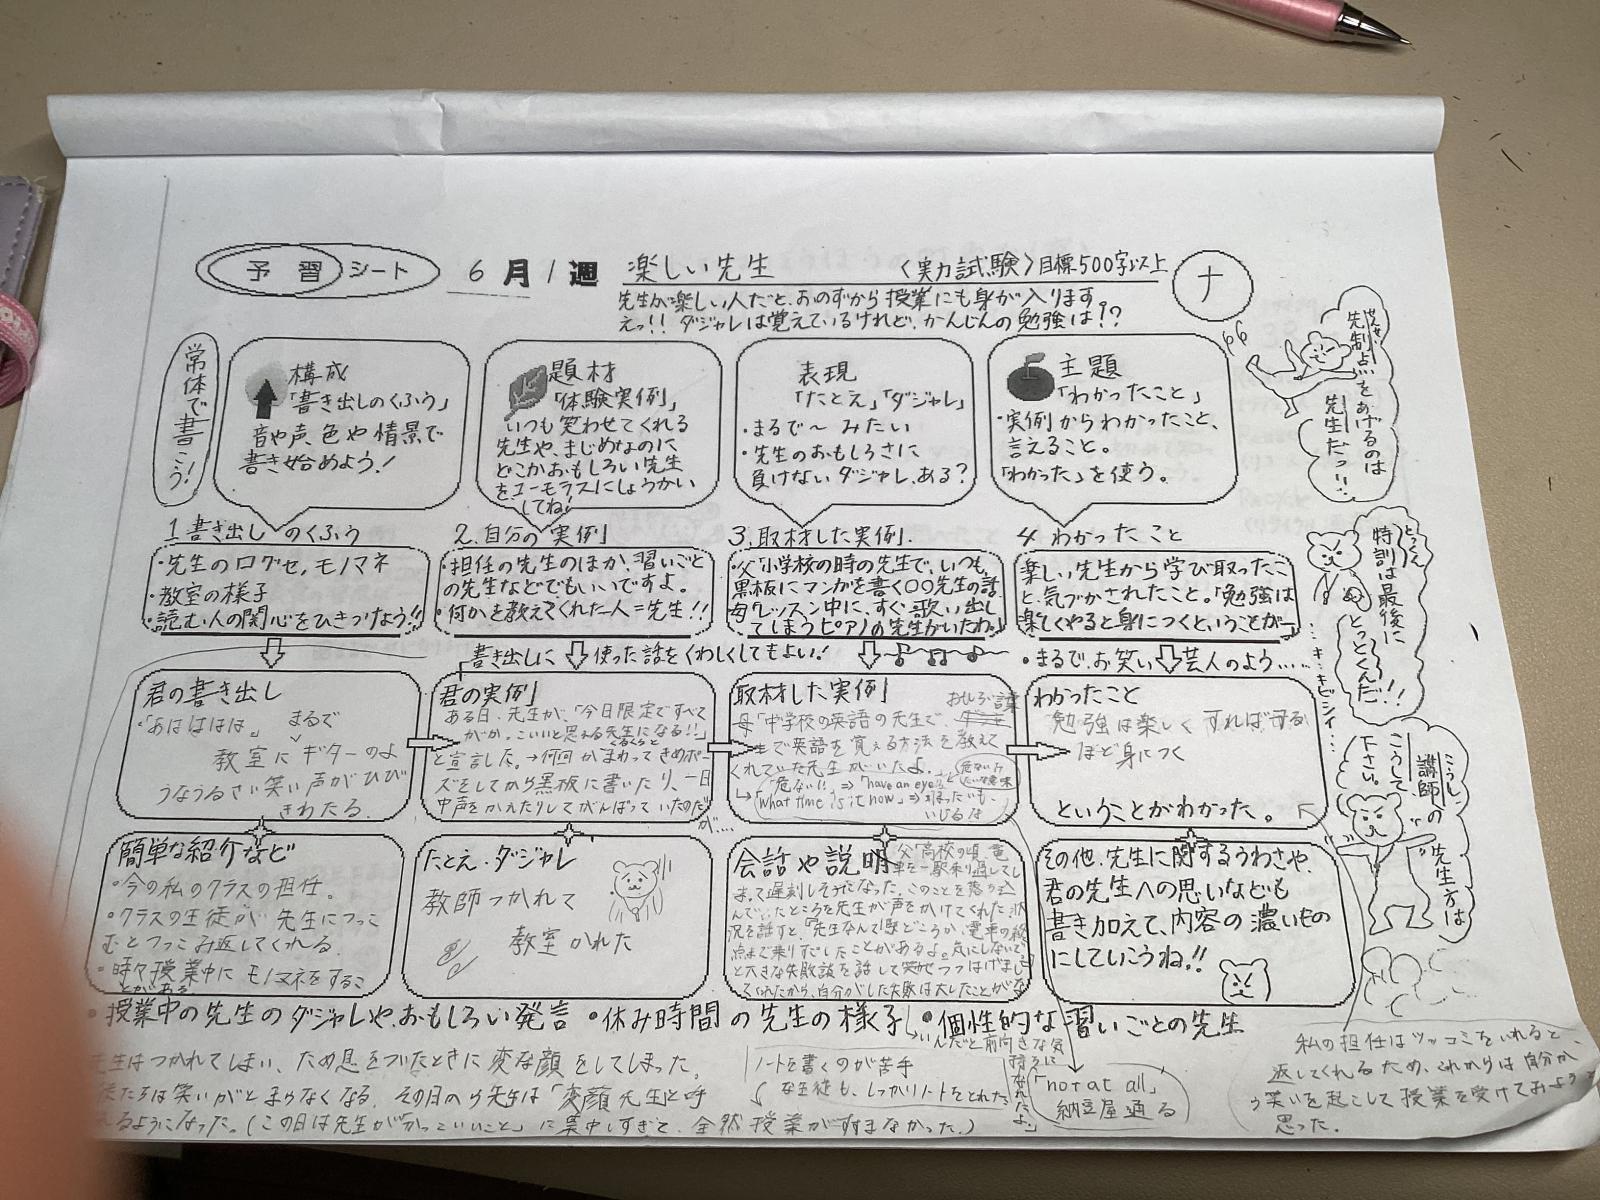 予習シート 6月1週 楽しい先生 〈実力試験〉目標500字以上 ナ
先生が楽しい人だと、おのずから授業にも身が入ります
えっ!! ダジャレは覚えているけれど、かんじんの勉強は!?
常体で書こう!
構成
「書き出しのくふう」
音や声、色や情景で
書き始めよう!
題材
「体験実例」
いつも笑わせてくれる
先生や、まじめなのに
どこかおもしろい先生
をユーモラスにしょうかい
してね!
表現
「たとえ」「ダジャレ」
・まるで〜みたい
・先生のおもしろさに
負けないダジャレ、ある?
主題
「わかったこと」
・実例からわかったこと、
言えること。
「わかった」を使う。
せんせい
先制点をあげるのは
先生だっ!!
1.書き出しのくふう
・先生の口グセ、モノマネ
・教室の様子
・読む人の関心をひきつけよう!!
2.自分の実例
・担任の先生のほか、習いごと
の先生などでもいいですよ。
・何かを教えてくれた人=先生!!
3.取材した実例.
父「小学校の時の先生で、いつも、
黒板にマンガを書く○○先生の話
母「レッスン中に、すぐ歌い出し
てしまうピアノの先生がいたわ。」
4 わかったこと
楽しい先生から学び取ったこ
と、気づかされたこと。「勉強は
楽しくやると身につくということが〜」
書き出しに使った話をくわしくしてもよい!
・まるで、お笑い芸人のよう……
とっくん
特訓は最後に
とっとくんだ!!
…キ・キビシイ…
君の書き出し
・「あはははは。」 まるで
教室にギターのよ
うなうるさい笑い声がひび
きわたる.
君の実例
ある日、先生が、「今日限定ですべて
がかっこいいと思える先生になる!!」
と宣言した。→何回かまわってきめポー
くるくると
ズをしてから黒板に書いたり、一日
中声をかえたりしてがんばっていたのだ
が…
取材した実例
母「中学校の英語の先生で、
生で英語を覚える方法を教えて
くれていた先生がいたよ.
危ない!! ⇒ "have an eye"
「What time is it now」⇒掘ったいも、
いじるな
わかったこと
勉強は楽しくすればするほど身につく
ということがわかった。
こうし
講師の先生方は
こうして下さい。
簡単な紹介など
・今の私のクラスの担任.
・クラスの生徒が先生につっこ
むとつっこみ返してくれる.
・時々授業中にモノマネをするこ
とがある
たとえ・ダジャレ
教師つかれて
教室かれた
会話や説明
父「高校の頃、電
車を一駅乗り過してし
まって遅刻しそうになった。このことを落ち込
んでいたところを先生が声をかけてくれた.状
況を話すと、「先生なんて1駅どころか、電車の終
点まで乗りすごしたことがあるよ。気にしないで」
と大きな失敗談を話して笑
くれたから、自分がした失敗は大したことがな
いんだと前向きな気
持ちに
なれたよ。」
その他、先生に関するうわさや、
君の先生への思いなども
書き加えて、内容の濃いもの
にしていこうね!!
・授業中の先生のダジャレや、おもしろい発言 ・休み時間の先生の様子 ・個性的な習いごとの先生
先生はつかれてしまい、ため息をついたときに変な顔をしてしまった.
徒たちは笑いがとまらなくなる. その日から先生は「変顔先生」と呼
れるようになった。(この日は先生が「かっこいいこと」に集中しすぎて、全然授業がすすまなかった.)
ノートを書くのが苦手
な生徒も、しっかりノートをとれた.
「not at all」
納豆屋通る
私の担任はツッコミをいれると、
返してくれるため、これからは自分か
ら笑いを起こして授業を受けてみようと
思った.